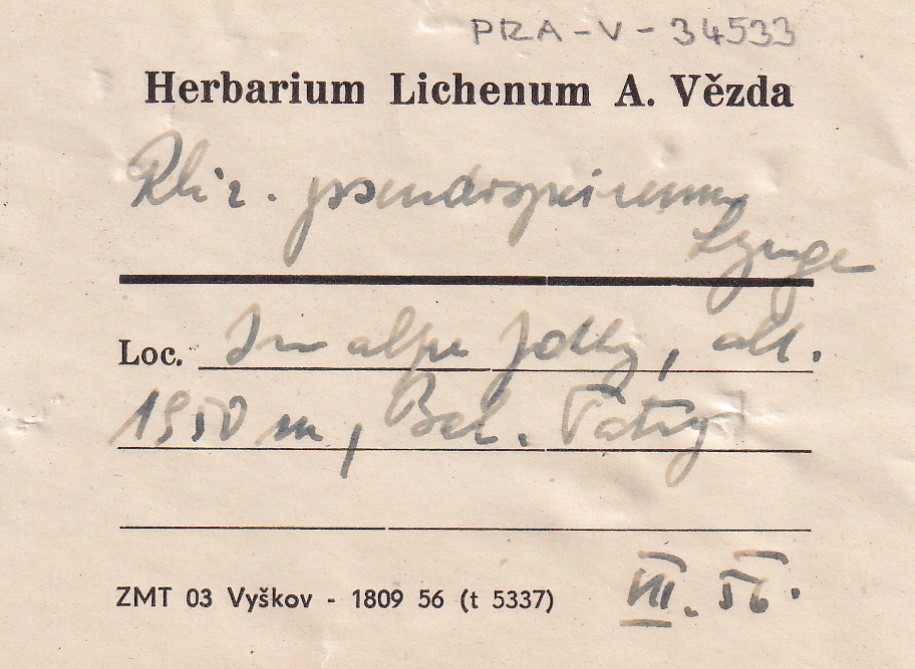 PRA-V-34533
Herbarium Lichenum A. Vězda
Rhiz. pseudospeireum
Lynge
Loc. In alpe Jatky, alt.
1950 m, Bel. Tatry
ZMT 03 Vyškov - 1809 56 (t 5337)
VIII. 56.